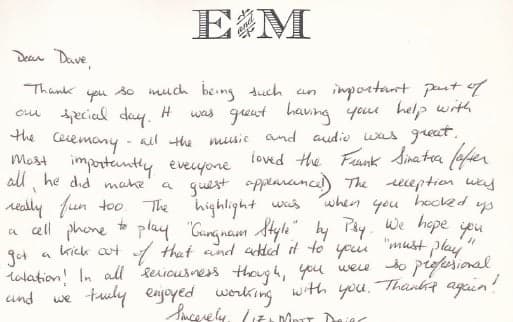 E and M
Dear Dave,
Thank you so much being such an important part of
our special day. It was great having your help with
the ceremony - all the music and audio was great.
Most importantly everyone loved the Frank Sinatra (after
all, he did make a guest appearance!) The reception was
really fun too. The highlight was when you hooked up
a cell phone to play "Gangnam Style" by Psy. We hope you
got a kick out of that and added it to your "must play"
rotation! In all seriousness though, you were so professional
and we truly enjoyed working with you. Thanks again!
Sincerely,